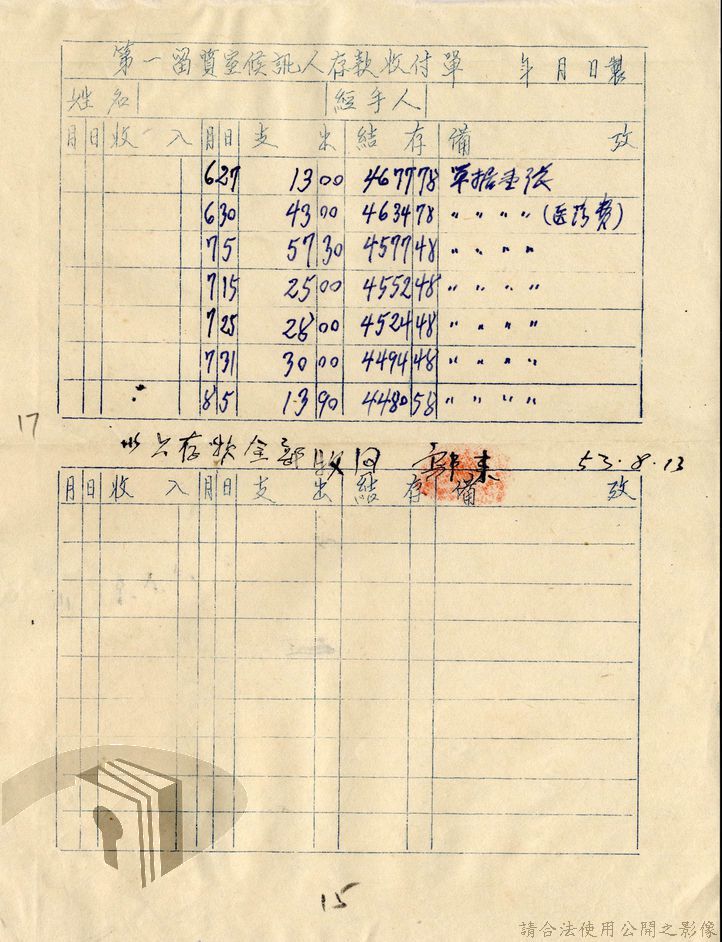 第一留質室候訊人存款收付單 年 月 日製
姓名 經手人
月 日 收 入 月 日 支 出 結 存 備 攷
6 27 13 00 4677 78 單据壹張
6 30 43 00 4634 78 〃 〃 〃 〃 (医診費)
7 5 57 30 4577 48 〃 〃 〃 〃
7 15 25 00 4552 48 〃 〃 〃 〃
7 25 28 00 4524 48 〃 〃 〃 〃
7 31 30 00 4494 48 〃 〃 〃 〃
8 5 13 90 4480 58 〃 〃 〃 〃
17
以上存款全部收回 53.8.13
月 日 收 入 月 日 支 出 結 存 備 攷
15
請合法使用公開之影像